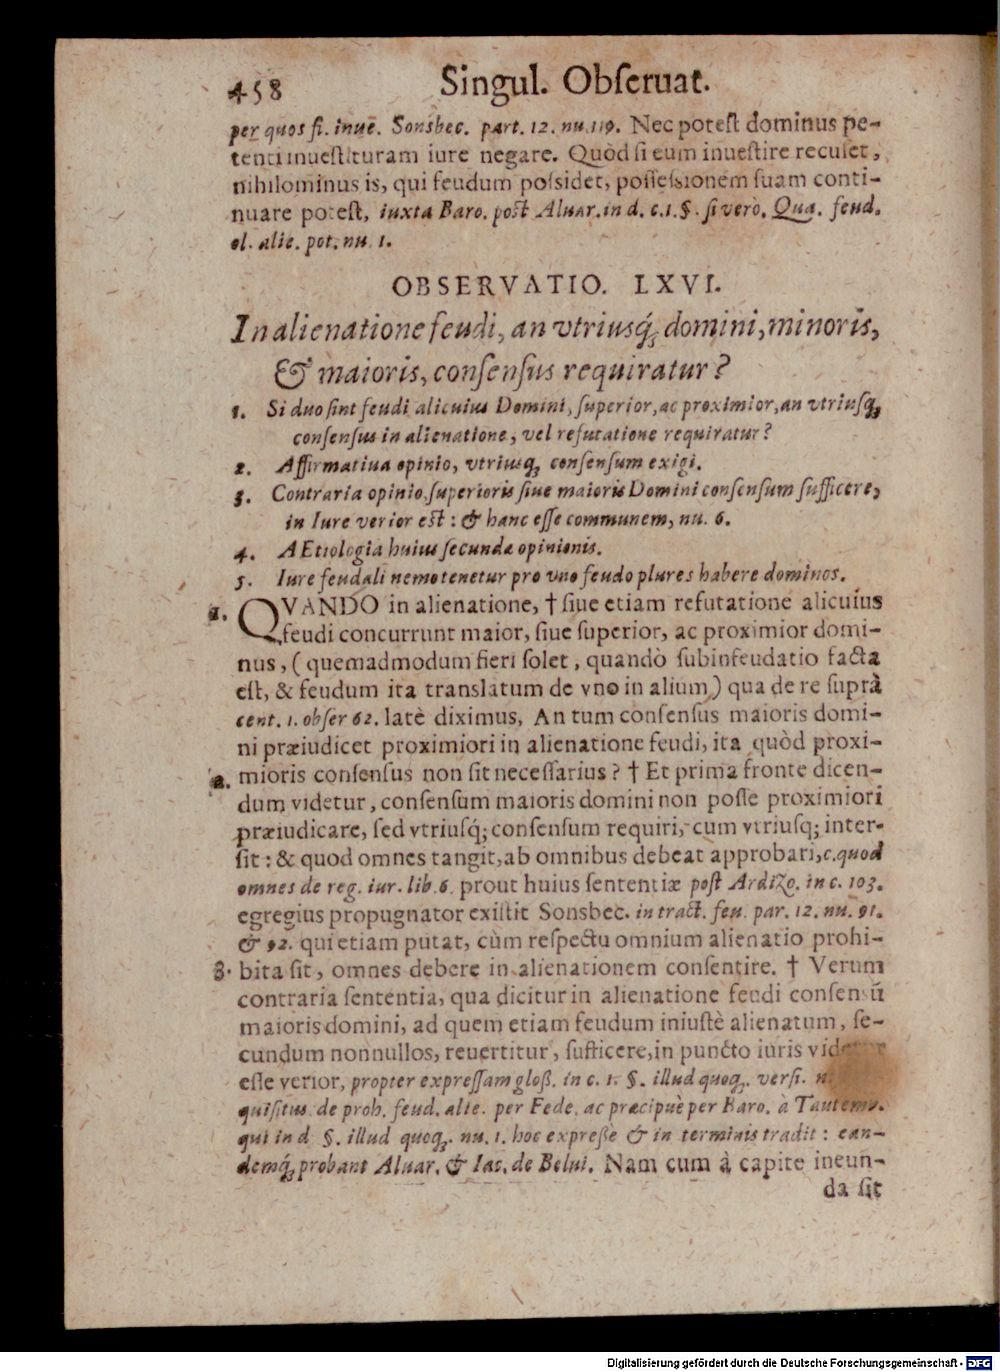 458 Singul. Obſeruat.
per quos ſi. inuē. Sonsbec. part. 12. nu. 119. Nec poteſt dominus pe-
tenti inueſtituram iure negare. Quòd ſi eum inueſtire recuſet,
nihilominus is, qui feudum poſsidet, poſſeſsionem ſuam conti-
nuare poteſt, iuxta Baro. poſt Aluar. in d. c. 1. §. ſi verò. Qua. feud.
ol. alie. pot. nu. 1.
OBSERVATIO. LXVI.
In alienatione feudi, an vtriusq́; domini, minoris,
& maioris, conſenſus requiratur?
1. Si duo ſint feudi alicuius Domini, ſuperior, ac proximior, an vtriuſq;
conſenſus in alienatione, vel refutatione requiratur?
2. Affirmatiua opinio, vtriusq; conſenſum exigi.
3. Contraria opinio, ſuperioris ſiue maioris Domini conſenſum ſufficere,
in Iure verior eſt: & hanc eſſe communem, nu. 6.
4. AEtiologia huius ſecundæ opinionis.
5. Iure feudali nemo tenetur pro vno feudo plures habere dominos.
1. QVANDO in alienatione, † ſiue etiam refutatione alicuius
feudi concurrunt maior, ſiue ſuperior, ac proximior domi-
nus, (quemadmodum fieri ſolet, quandò ſubinfeudatio facta
eſt, & feudum ita translatum de vno in alium) qua de re ſuprà
cent. 1. obſer 62. latè diximus, An tum conſenſus maioris domi-
ni præiudicet proximiori in alienatione feudi, ita quòd proxi-
2. mioris conſenſus non ſit neceſſarius? † Et prima fronte dicen-
dum videtur, conſenſum maioris domini non poſſe proximiori
præiudicare, ſed vtriuſq́; conſenſum requiri, cum vtriuſq; inter-
ſit: & quod omnes tangit, ab omnibus debeat approbari, c. quod
omnes de reg. iur. lib. 6. prout huius ſententiæ poſt Ardizo. in c. 103.
egregius propugnator exiſtit Sonsbec. in tract. feu. par. 12. nu. 91.
& 92. qui etiam putat, cùm reſpectu omnium alienatio prohi-
3. bita ſit, omnes debere in alienationem conſentire. † Verum
contraria ſententia, qua dicitur in alienatione feudi conſenſū
maioris domini, ad quem etiam feudum iniuſtè alienatum, ſe-
cundum nonnullos, reuertitur, ſufficere, in puncto iuris videtur
eſſe verior, propter expreſſam gloß. in c. 1. §. illud quoq;. verſi.
quiſitus. de proh. feud. alie. per Fede. ac præcipuè per Baro. à Tautemo.
qui in d. §. illud quoq;. nu. 1. hoc expreße & in terminis tradit: ean-
demq́; probant Aluar. & Iac. de Belui. Nam cum à capite ineun-
da ſit
Digitalisierung gefördert durch die Deutsche Forschungsgemeinschaft - DFG